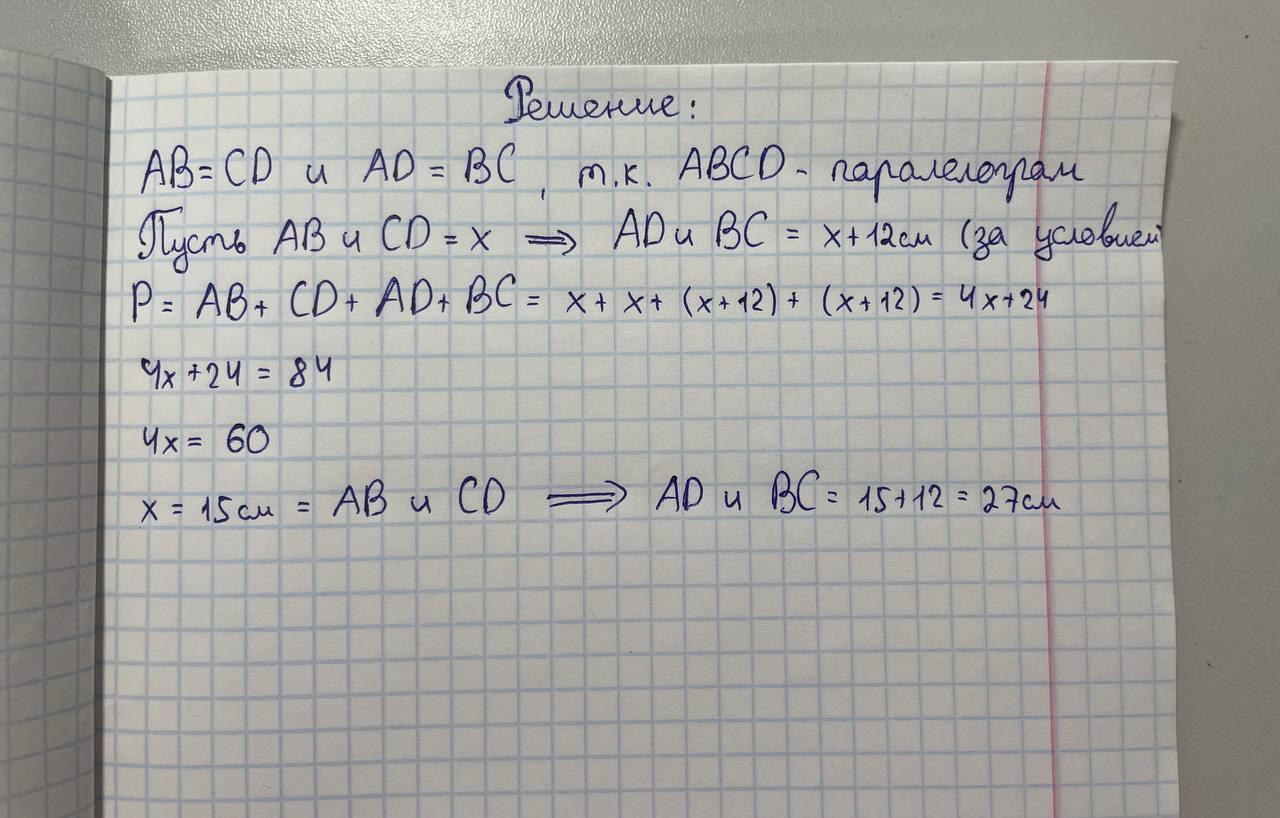 Решение:
AB = CD и AD = BC, т.к. ABCD - паралелограм
Пусть AB и CD = x ⟹ AD и BC = x+12см (за условием
P = AB + CD + AD + BC = x + x + (x+12) + (x+12) = 4x+24
4x+24 = 84
4x = 60
x = 15см = AB и CD ⟹ AD и BC = 15+12 = 27см